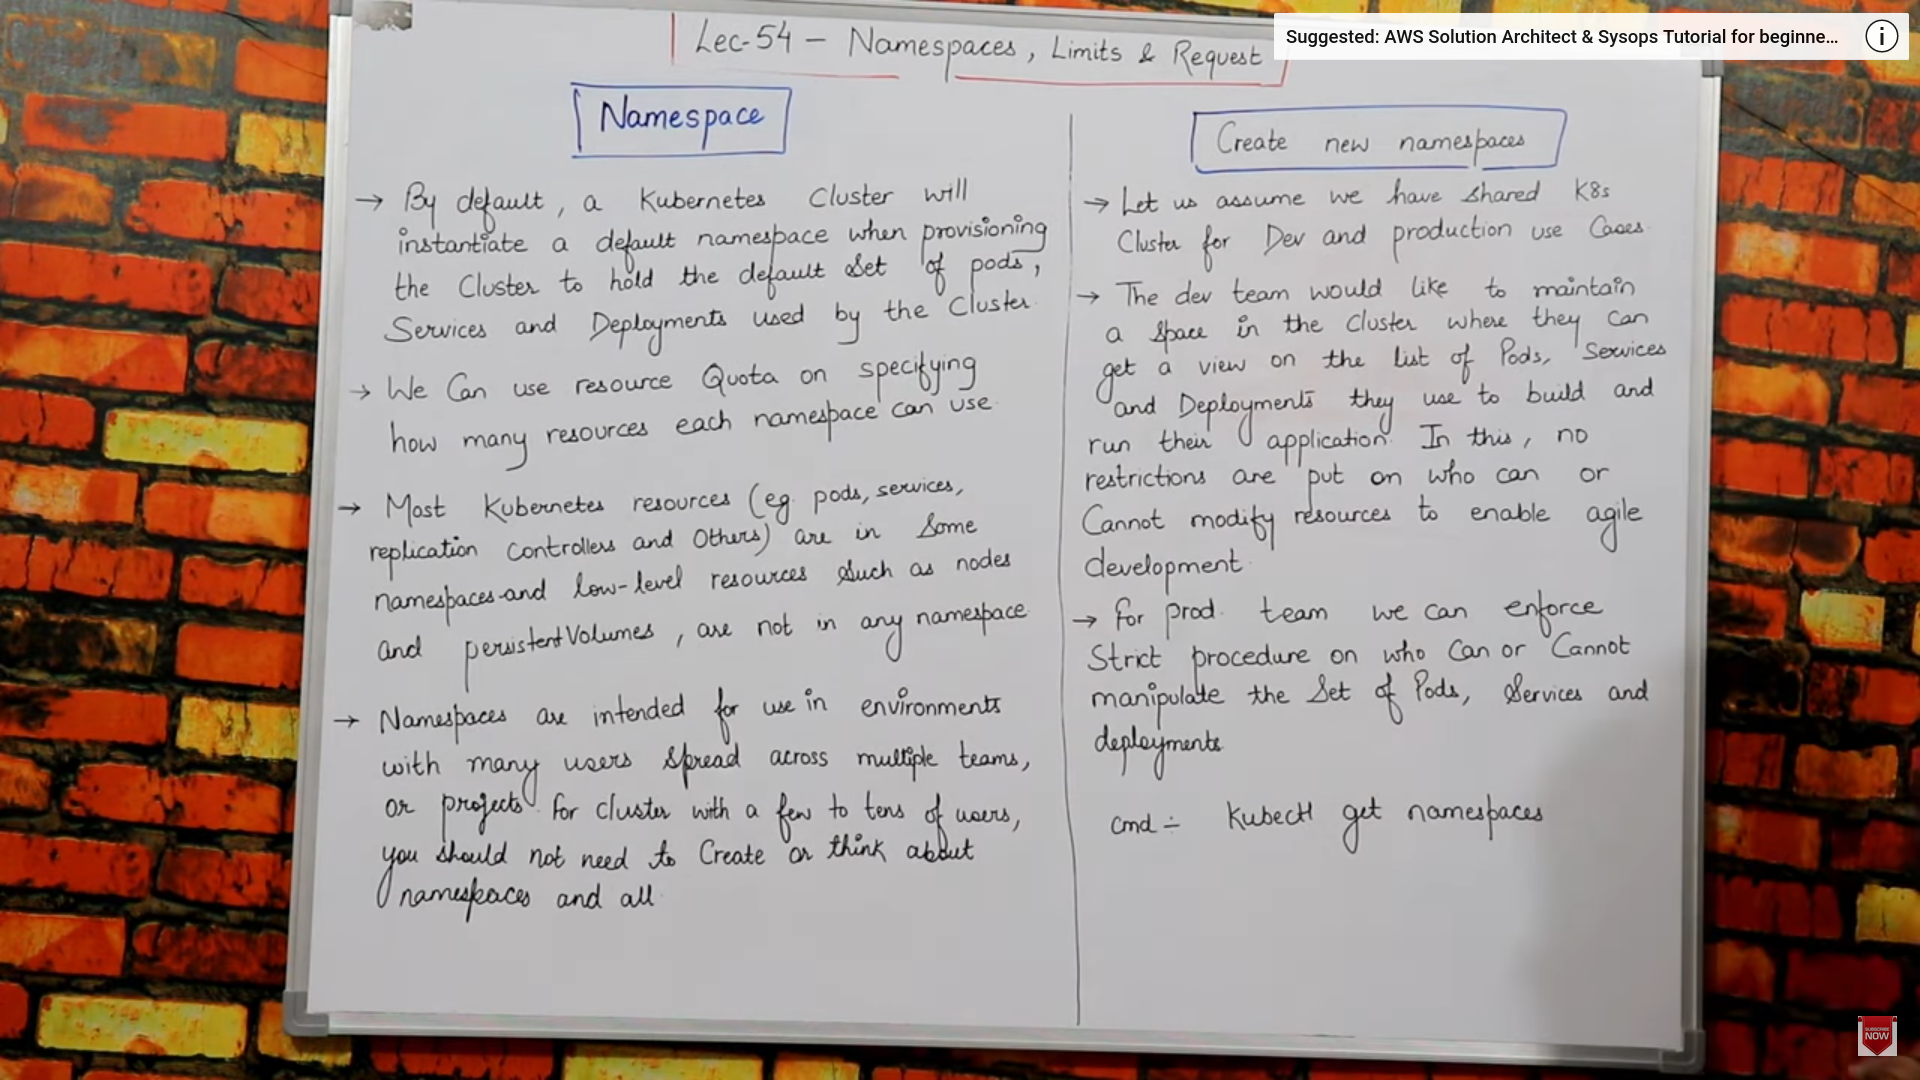 Lec-54 - Namespaces, Limits & Request
Suggested: AWS Solution Architect & Sysops Tutorial for beginne...
Namespace
→ By default, a Kubernetes Cluster will
instantiate a default namespace when provisioning
the Cluster to hold the default Set of pods,
Services and Deployments used by the Cluster.
→ We Can use resource Quota on specifying
how many resources each namespace can use.
→ Most Kubernetes resources (eg. pods, services,
replication Controllers and Others) are in Some
namespaces and low-level resources such as nodes
and persistentVolumes, are not in any namespace.
→ Namespaces are intended for use in environments
with many users spread across multiple teams,
or projects. For cluster with a few to tens of users,
you should not need to Create or think about
namespaces and all.
Create new namespaces
→ Let us assume we have shared K8s
Cluster for Dev and production use Cases.
→ The dev team would like to maintain
a space in the cluster where they can
get a view on the list of Pods, Services
and Deployments they use to build and
run their application. In this, no
restrictions are put on who can or
Cannot modify resources to enable agile
development.
→ For prod. team we can enforce
Strict procedure on who Can or Cannot
manipulate the Set of Pods, Services and
deployments
cmd ÷ Kubectl get namespaces
SUBSCRIBE
NOW